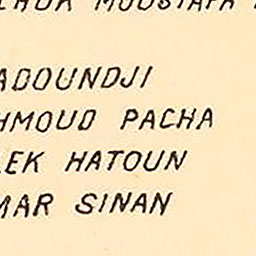 MOUSTAFA
ADOUNDJI
HMOUD PACHA
LEK HATOUN
MAR SINAN